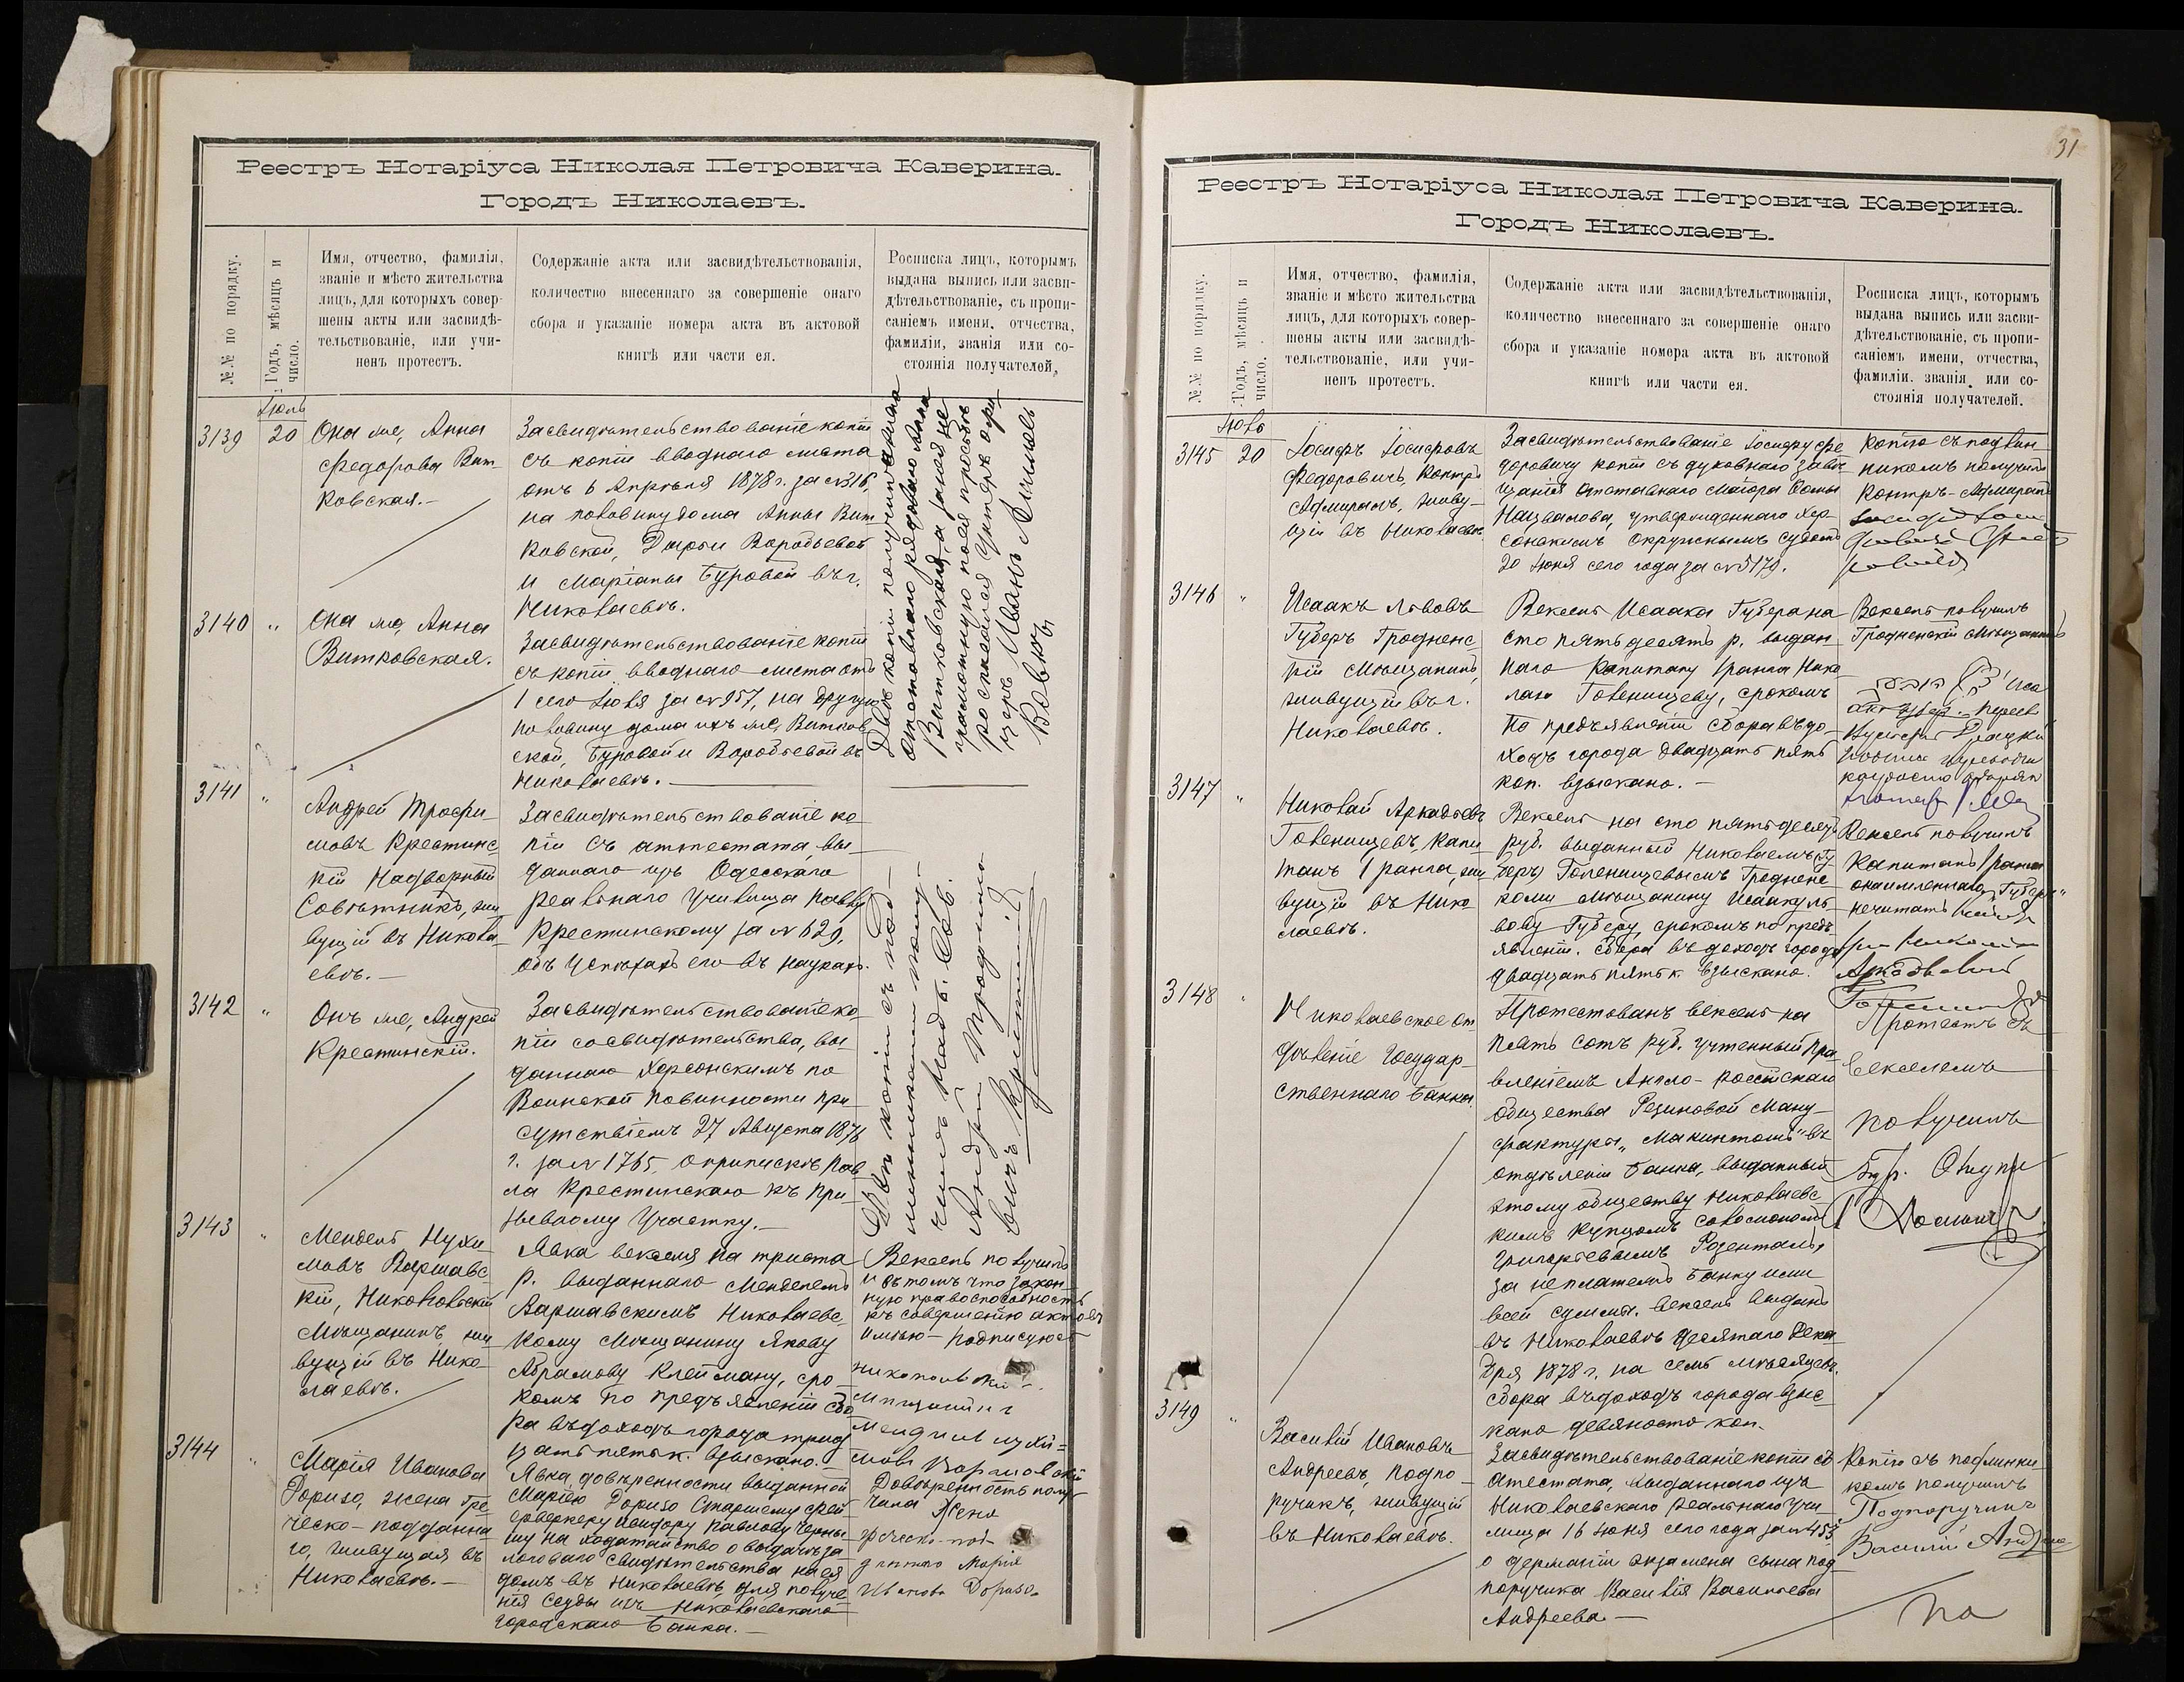 Реестръ Нотаріуса Николая Петровича Каверина.
Городъ Николаевъ.
№№ по порядку.
Годъ, мѣсяцъ и
число.
Имя, отчество, фамилія,
званіе и мѣсто жительства
лицъ, для которыхъ совер-
шены акты или засвидѣ-
тельствованіе, или учи-
ненъ протестъ.
Содержаніе акта или засвидѣтельствованія,
количество внесеннаго за совершеніе онаго
сбора и указаніе номера акта въ актовой
книгѣ или части ея.
Росписка лицъ, которымъ
выдана выпись или засви-
дѣтельствованіе, съ пропи-
саніемъ имени, отчества,
фамиліи, званія или со-
стоянія получателей.
Іюль
3139
20
Она же, Анна
Федорова Вит-
ковская.-
Засвидѣтельствованіе копіи
съ копіи вводнаго листа
отъ 6 Апрѣля 1878 г. за № 316,
на половину дома Анны Вит-
ковской, Дарьи Воробьевой
и Маріаны Буровой въ г.
Николаевѣ.
3140
"
Она же, Анна
Витковская.
Засвидѣтельствованіе копіи
съ копіи вводнаго листа отъ
1 сего Іюля за № 957, на другую
половину дома ихъ же, Витков
ской, Буровой и Воробьевой въ
Николаевѣ.
Двѣ копіи получила жена
отставнаго рядоваго Анна
Витковская, а за нея не
грамотную по ея просьбѣ
росписался Унтеръ офи
церъ Иванъ
3141
"
Андрей Трофи-
мовъ Крестинс-
кій Надворный
Совѣтникъ, жи
вущій въ Никола-
евѣ.-
Засвидѣтельствованіе ко
піи съ аттестата, вы-
даннаго изъ Одесскаго
реальнаго Училища Павлу
Крестинскому за № 629,
объ успѣхахъ его въ наукахъ.
3142
"
Онъ же, Андрей
Крестинскій.
Засвидѣтельствованіе ко-
піи со свидѣтельства, вы-
даннаго Херсонскимъ по
Воинской повинности при-
сутствіемъ 27 Августа 1876
г. за № 1765, о припискѣ Пав
ла Крестинскаго къ при-
зывному участку.-
Двѣ копіи съ под-
линниками полу-
чилъ Надв. Сов.
Андрей Трофимо
вичъ Крестинскій
3143
"
Мендель Нухи-
мовъ Варшавс-
кій, Никопольскій
Мѣщанинъ, жи
вущій въ Нико-
лаевѣ.
Явка векселя на триста
р. выданнаго Менделемъ
Варшавскимъ Николаевс-
кому мѣщанину Якову
Абрамову Клейману, сро-
комъ по предъявленіи сбо
ра въ доходъ города трид
цать пять к. взыскано.-
Вексель получилъ
и въ томъ что закон-
ную правоспособность
къ совершенію актовъ
имѣю - подписуюсь
3144
"
Марія Иванова
Доризо, жена Гре
ческо-подданна
го, живущая въ
Николаевѣ.-
Явка довѣренности выданной
Маріею Доризо Старшему фей-
ерверкеру Исидору Павлову Черны
шу на ходатайство о выдачѣ за
логоваго свидѣтельства на ея
домъ въ Николаевѣ, для получе
нія ссуды изъ Николаевскаго
городскаго Банка.-
Довѣренность полу-
чила Жена
Греческо-под-
даннаго Марія
Иванова Доризо.
31
Реестръ Нотаріуса Николая Петровича Каверина.
Городъ Николаевъ.
№№ по порядку.
Годъ, мѣсяцъ и
число.
Имя, отчество, фамилія,
званіе и мѣсто жительства
лицъ, для которыхъ совер-
шены акты или засвидѣ-
тельствованіе, или учи-
ненъ протестъ.
Содержаніе акта или засвидѣтельствованія,
количество внесеннаго за совершеніе онаго
сбора и указаніе номера акта въ актовой
книгѣ или части ея.
Росписка лицъ, которымъ
выдана выпись или засви-
дѣтельствованіе, съ пропи-
саніемъ имени, отчества,
фамиліи. званія или со-
стоянія получателей.
Іюль
3145
20
Іосифъ Іосифовъ
Федоровичъ, Контръ
Адмиралъ, живу-
щій въ Николаевѣ.
Засвидѣтельствованіе Іосифу Фе
доровичу копіи съ духовнаго завѣ-
щанія отставнаго Маіора Фомы
утвержденнаго Хер-
сонскимъ окружнымъ судомъ
20 Іюня сего года за № 5179.
Копію съ подлин-
никомъ получилъ
Контръ-Адмиралъ
3146
"
Исаакъ Львовъ
Губеръ Гродненс-
кій Мѣщанинъ,
живущій въ г.
Николаевѣ.
Вексель Исаака Губера на
сто пятьдесятъ р. выдан
наго Капитану 1 ранга Нико
лаю Голенищеву, срокомъ
по предъявленіи сбора въ до-
ходъ города двадцать пять
коп. взыскано.-
Вексель получилъ
Гродненскій Мѣщанинъ
3147
"
Николай Аркадьевъ
Голенищевъ, Капи
танъ 1 ранга, жи
вущій въ Нико
лаевѣ.
Вексель на сто пятьдесятъ
руб. выданный Николаемъ (Гу
беръ) Голенищевымъ Гродненс
кому мѣщанину Исааку Ль
вову Губеру, срокомъ по предъ
явленіи. Сбора въ доходъ города
двадцать пять к. взыскано.
Вексель получилъ
Капитанъ 1 ранга
"Губеръ"
нечитать
Николай
3148
"
Николаевское от
дѣленіе Государ
ственнаго Банка
Протестованъ вексель на
пять сотъ руб. учтенный Пра
вленіемъ Англо-Россійскаго
общества Резиновой Ману-
фактуры „Макинтошъ" въ
отдѣленіи Банка, выданный
этому обществу Николаевс
кимъ купцомъ Соломономъ
Григорьевымъ Розенталь,
за неплатежъ Банку ими
всей суммы. вексель выданъ
въ Николаевѣ десятаго Дека
бря 1878 г. на семь мѣсяцевъ.
сбора въ доходъ города взыс
кано девяносто коп.
Протестъ съ
векселемъ
получилъ
3149
"
Василій Ивановъ
Андреевъ, Подпо-
ручикъ, живущій
въ Николаевѣ.
Засвидѣтельствованіе копіи съ
атестата, выданнаго изъ
Николаевскаго реальнаго учи
лища 16 Іюня сего года за № 453,
о держаніи экзамена сына под
поручика Василія Васильева
Андреева.-
Копію съ подлинни
комъ получилъ
Подпоручикъ
Василій Андрее
По